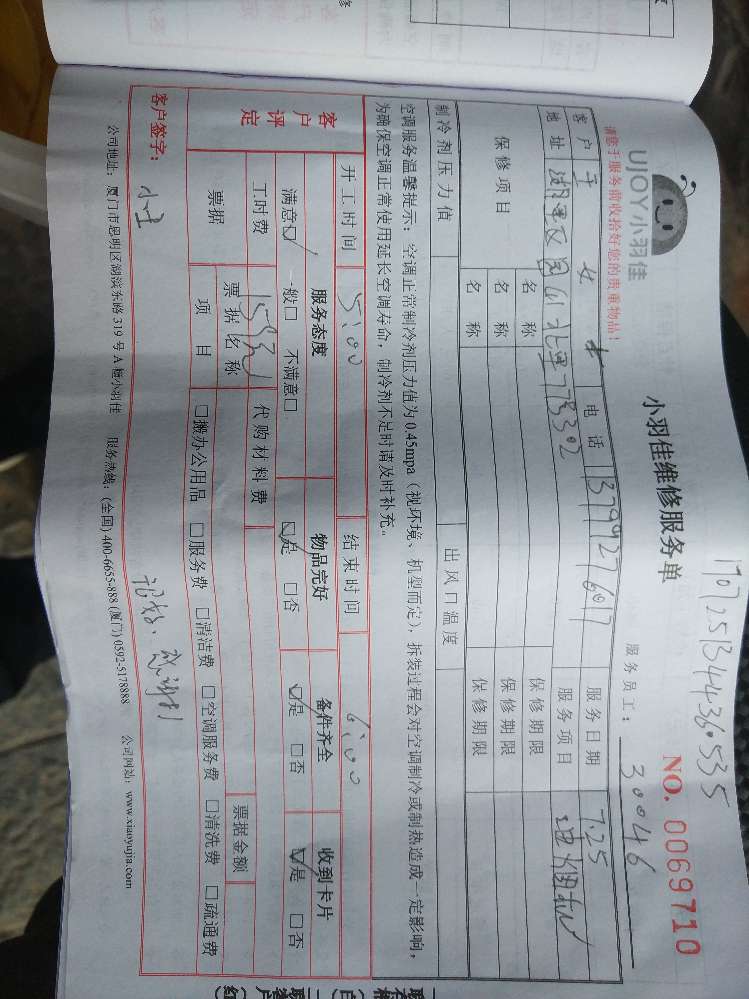 17072513443​60535
UJOY小羽佳
小羽佳维修服务单
NO. 0069710
请您于服务前收拾好您的贵重物品!
服务员工: 30046
客户 王 女 电话 13799276017 服务日期 7.25
地址 湖里区 服务项目 油烟机
保修项目 名称 保修期限
名称 保修期限
名称 保修期限
制冷剂压力值 出风口温度
空调服务温馨提示:空调正常制冷剂压力值为0.45mpa(视环境、机型而定),拆装过程会对空调制冷或制热造成一定影响,
为确保空调正常使用延长空调寿命,制冷剂不足时请及时补充。
客户评定
开工时间 15:00 结束时间 6:00
服务态度 物品完好 备件齐全 收到卡片
满意☑ 一般□ 不满意□ ☑是 □否 ☑是 □否 ☑是 □否
工时费 159元 代购材料费
票据 票据名称 票据金额
项目 □搬办公用品 □服务费 □清洁费 □空调服务费 □清洗费 □疏通费
客户签字: 小王
公司地址:厦门市思明区湖滨东路319号A幢小羽佳 服务热线:(全国)400-6655-888 (厦门)0592-5178888 公司网站:www.xiaoyujia.com